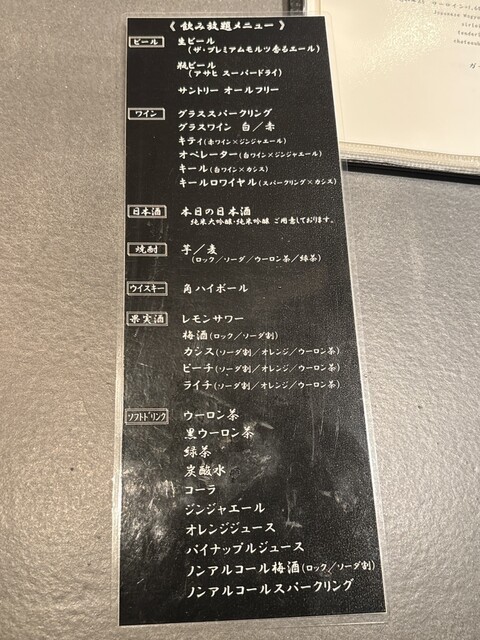 《 飲み放題メニュー 》
ビール 生ビール
(ザ・プレミアムモルツ香るエール)
瓶ビール
(アサヒ スーパードライ)
サントリー オールフリー
ワイン グラススパークリング
グラスワイン 白／赤
キティ(赤ワイン×ジンジャエール)
オペレーター(白ワイン×ジンジャエール)
キール(白ワイン×カシス)
キールロワイヤル(スパークリング×カシス)
日本酒 本日の日本酒
純米大吟醸・純米吟醸 ご用意しております。
焼酎 芋／麦
(ロック／ソーダ／ウーロン茶／緑茶)
ウイスキー 角ハイボール
果実酒 レモンサワー
梅酒(ロック／ソーダ割)
カシス(ソーダ割／オレンジ／ウーロン茶)
ピーチ(ソーダ割／オレンジ／ウーロン茶)
ライチ(ソーダ割／オレンジ／ウーロン茶)
ソフトドリンク ウーロン茶
黒ウーロン茶
緑茶
炭酸水
コーラ
ジンジャエール
オレンジジュース
パイナップルジュース
ノンアルコール梅酒(ロック／ソーダ割)
ノンアルコールスパークリング